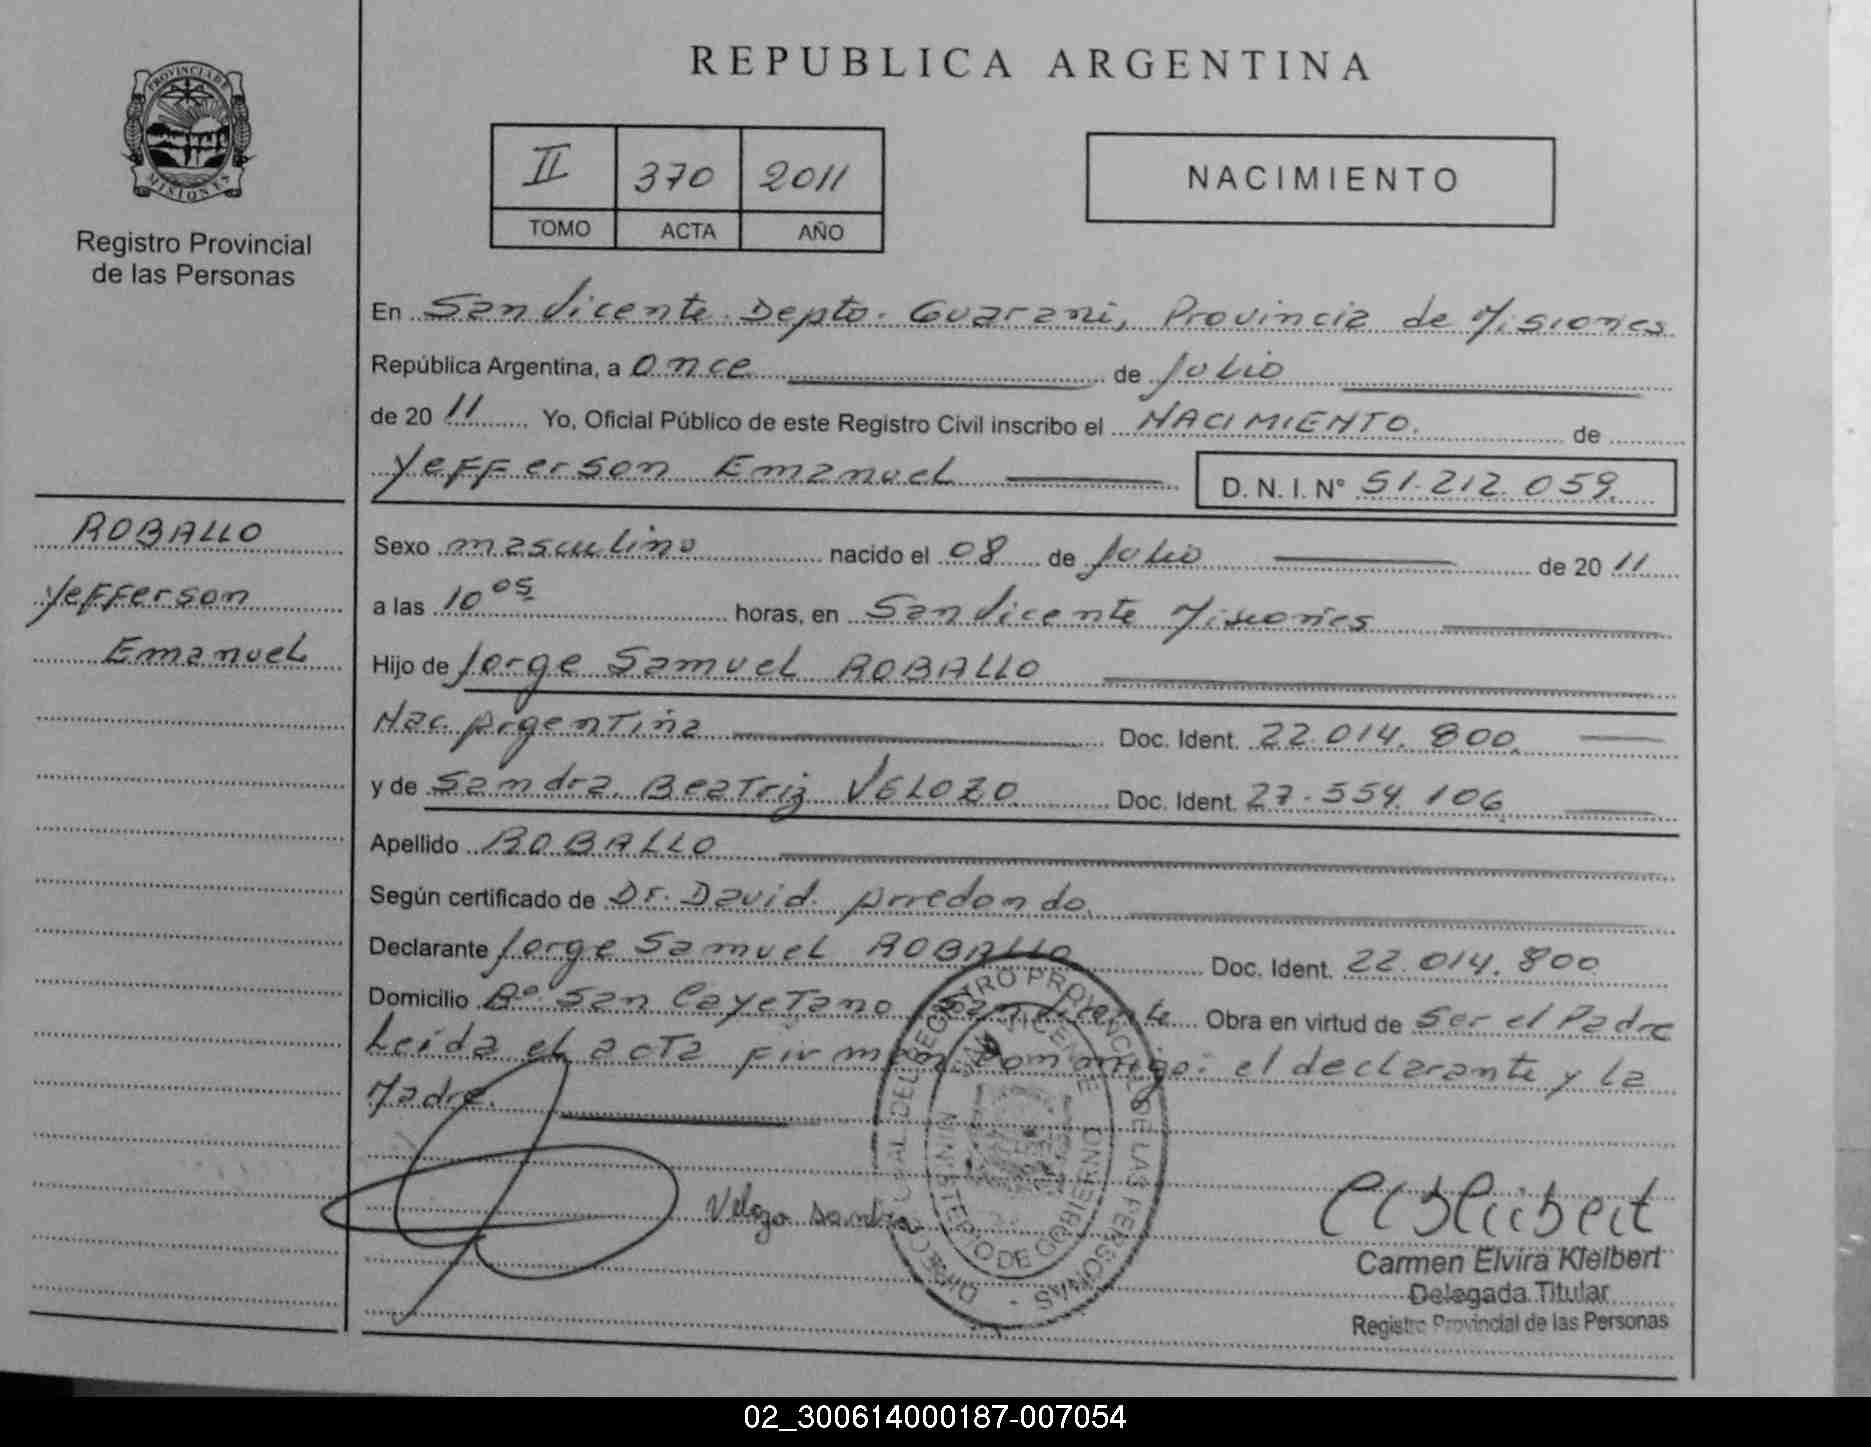 REPUBLICA ARGENTINA
PROVINCIA DE
MISIONES
Registro Provincial
de las Personas
II 370 2011
TOMO ACTA AÑO
NACIMIENTO
En San Vicente Depto. Guarani, Provincia de Misiones
República Argentina, a once de Julio
de 2011 Yo, Oficial Público de este Registro Civil inscribo el NACIMIENTO. de
Yefferson Emanuel D. N. I. Nº 51.212.059.
ROBALLO
Yefferson
Emanuel
Sexo masculino nacido el 08 de Julio de 2011
a las 10 05 horas, en San Vicente Misiones
Hijo de Jorge Samuel ROBALLO
Nac. Argentina Doc. Ident. 22.014.800.
y de Sandra Beatriz VELOZO Doc. Ident. 27.554.106
Apellido ROBALLO
Según certificado de Dr. David Arredondo.
Declarante Jorge Samuel ROBALLO Doc. Ident. 22.014.800
Domicilio Bº San Cayetano San Vicente Obra en virtud de Ser el Padre
Leida el acta firman conmigo: el declarante y la
Madre.
DIRECCION GRAL DEL REGISTRO PROVINCIAL DE LAS PERSONAS
SAN VICENTE
MINISTERIO DE GOBIERNO
Velozo Sandra
Carmen Elvira Kleibert
Delegada Titular
Registro Provincial de las Personas
02_300614000187-007054